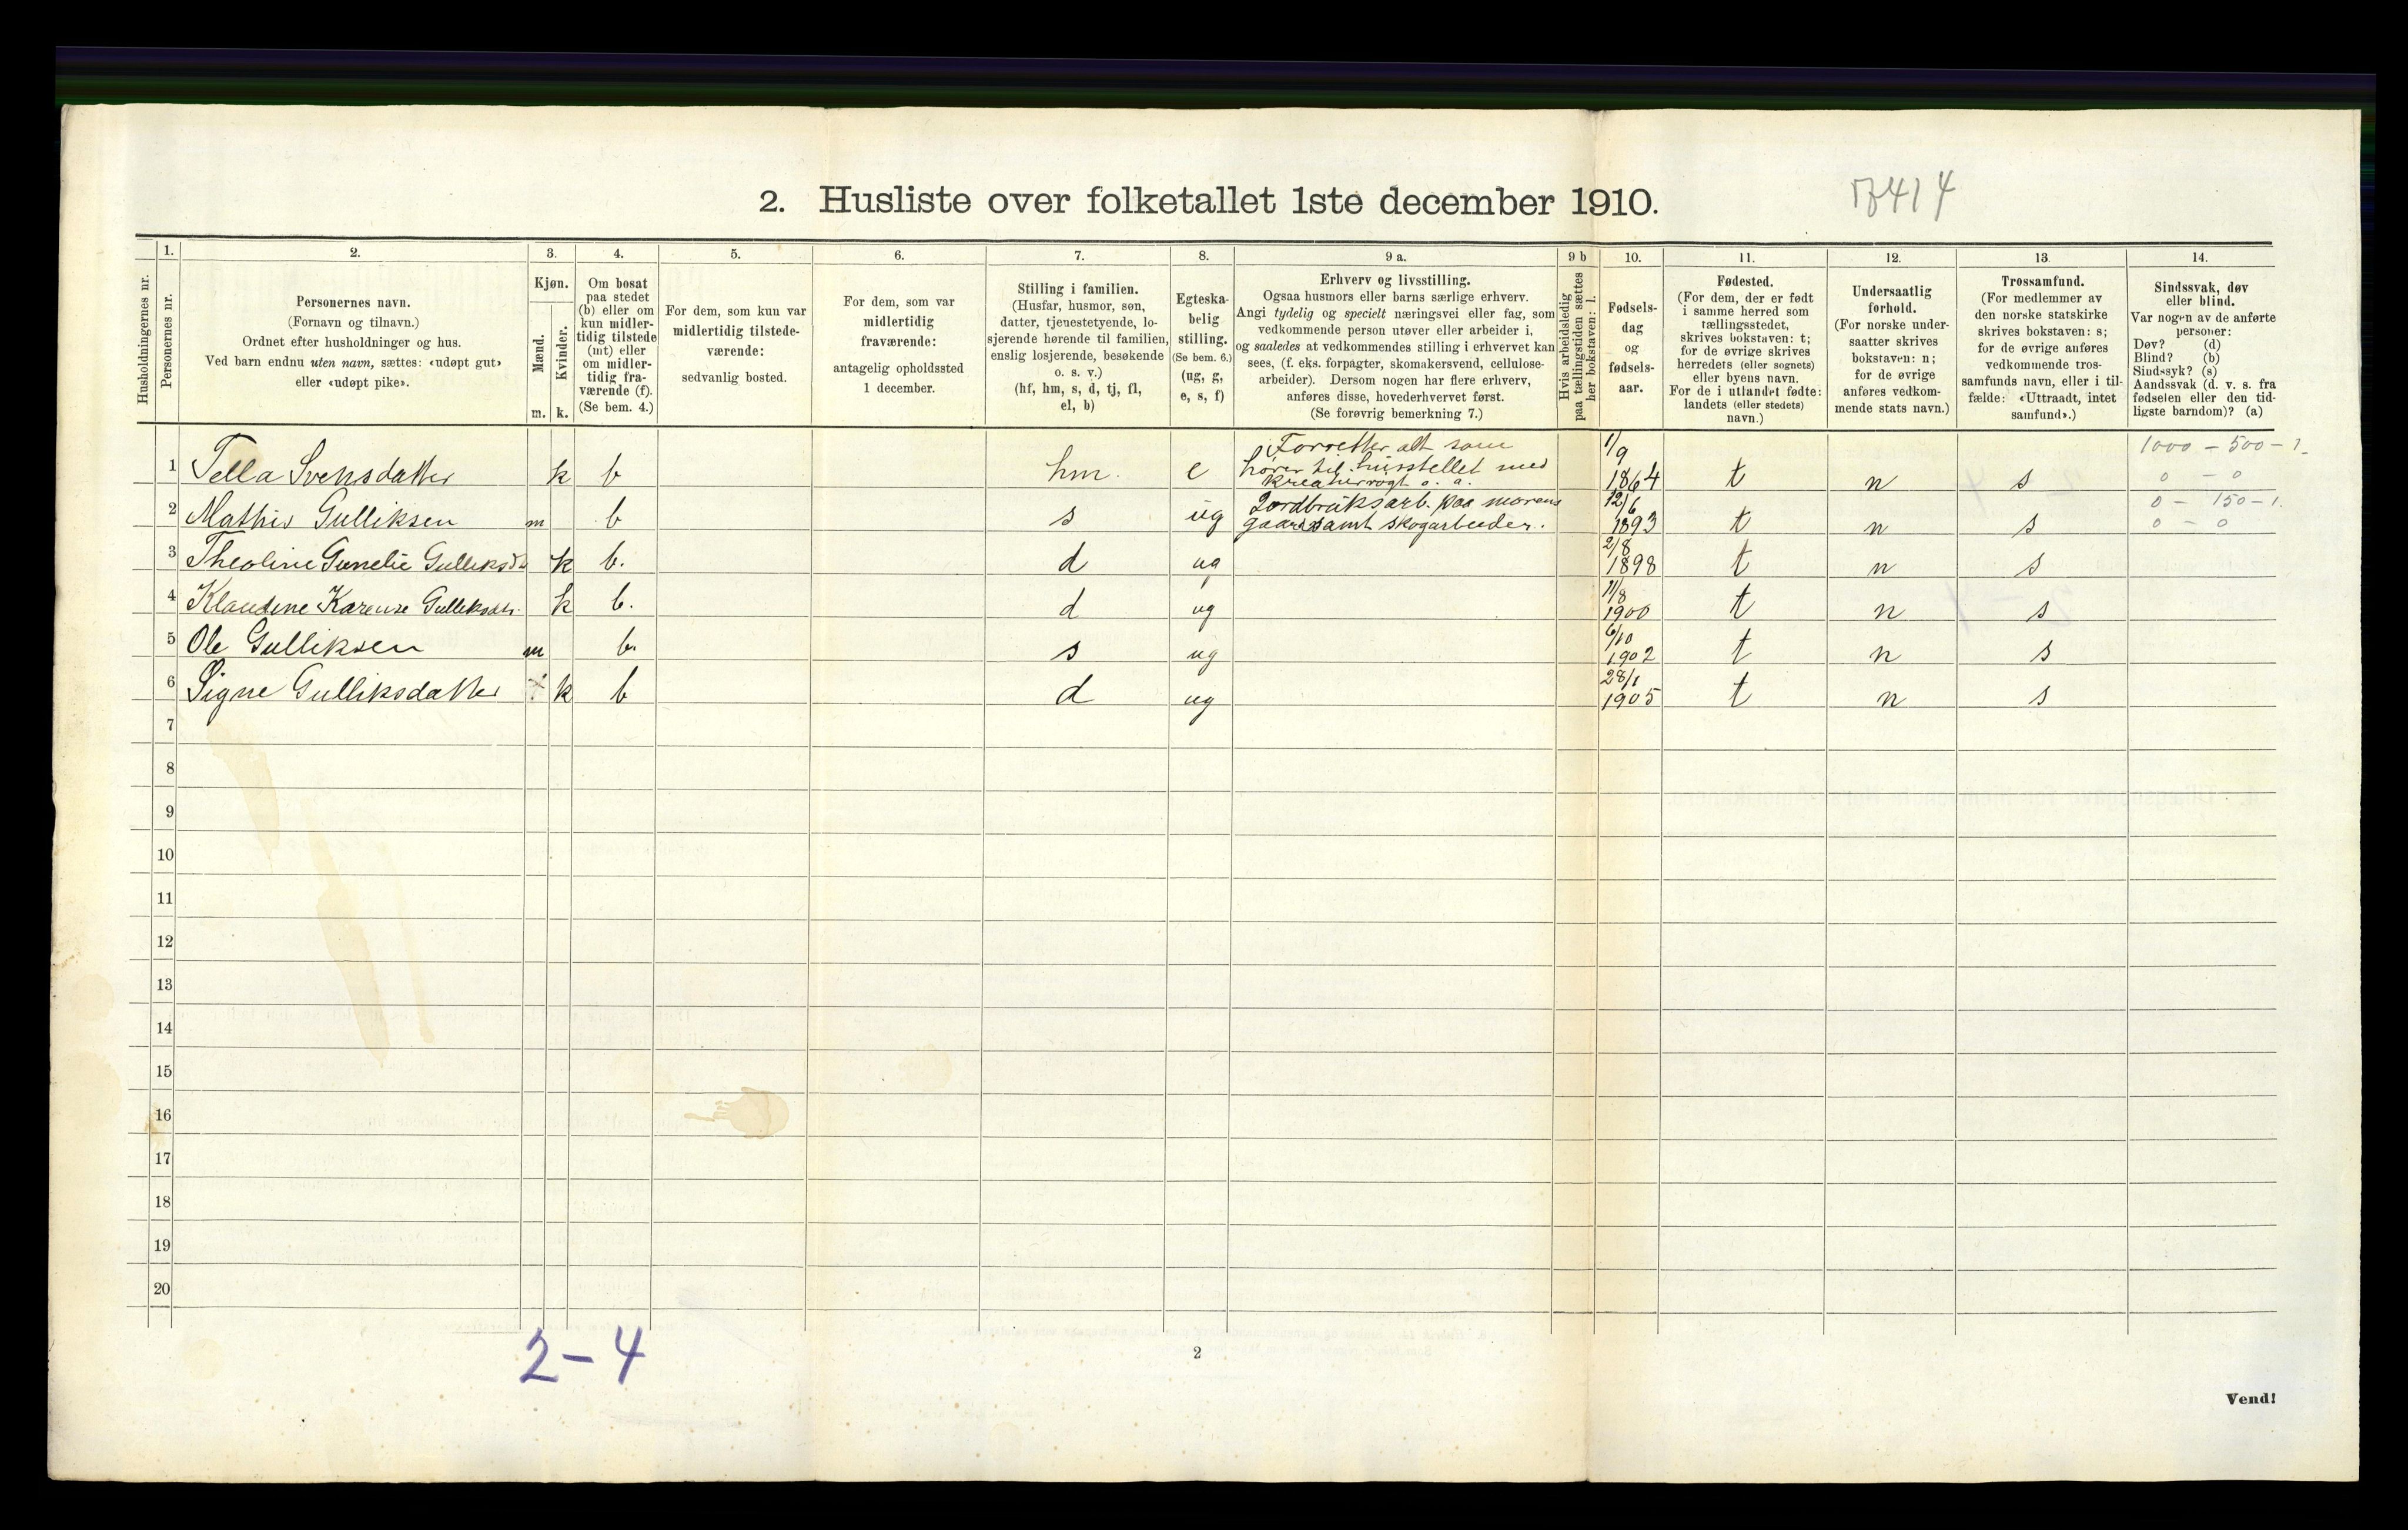 2. Husliste over folketallet 1ste december 1910.
Husholdningernes nr.
1.
Personernes nr.
2.
Personernes navn.
(Fornavn og tilnavn.)
Ordnet efter husholdninger og hus.
Ved barn endnu uten navn, sættes: «udøpt gut»
eller «udøpt pike».
3.
Kjøn.
Mænd.
Kvinder.
m. k.
4.
Om bosat
paa stedet
(b) eller om
kun midler-
tidig tilstede
(mt) eller
om midler-
tidig fra-
værende (f).
(Se bem. 4.)
5.
For dem, som kun var
midlertidig tilstede-
værende:
sedvanlig bosted.
6.
For dem, som var
midlertidig
fraværende:
antagelig opholdssted
1 december.
7.
Stilling i familien.
(Husfar, husmor, søn,
datter, tjenestetyende, lo-
sjerende hørende til familien,
enslig losjerende, besøkende
o. s. v.)
(hf, hm, s, d, tj, fl,
el, b)
8.
Egteska-
belig
stilling.
(Se bem. 6.)
(ug, g,
e, s, f)
9 a.
Erhverv og livsstilling.
Ogsaa husmors eller barns særlige erhverv.
Angi tydelig og specielt næringsvei eller fag, som
vedkommende person utøver eller arbeider i,
og saaledes at vedkommendes stilling i erhvervet kan
sees, (f. eks. forpagter, skomakersvend, cellulose-
arbeider). Dersom nogen har flere erhverv,
anføres disse, hovederhvervet først.
(Se forøvrig bemerkning 7.)
9 b
Hvis arbeidsledig
paa tællingstiden sættes
her bokstaven: l.
10.
Fødsels-
dag
og
fødsels-
aar.
11.
Fødested.
(For dem, der er født
i samme herred som
tællingsstedet,
skrives bokstaven: t;
for de øvrige skrives
herredets (eller sognets)
eller byens navn.
For de i utlandet fødte:
landets (eller stedets)
navn.)
12.
Undersaatlig
forhold.
(For norske under-
saatter skrives
bokstaven: n;
for de øvrige
anføres vedkom-
mende stats navn.)
13.
Trossamfund.
(For medlemmer av
den norske statskirke
skrives bokstaven: s;
for de øvrige anføres
vedkommende tros-
samfunds navn, eller i til-
fælde: «Uttraadt, intet
samfund».)
14.
Sindssvak, døv
eller blind.
Var nogen av de anførte
personer:
Døv? (d)
Blind? (b)
Sindssyk? (s)
Aandssvak (d. v. s. fra
fødselen eller den tid-
ligste barndom)? (a)
1 Tella Svensdatter k b hm. e Forretter alt som
hører til husstellet med
kreaturrøgt o. a. 1/9
1864 t n s 1000 - 500 - 1.
0 - 0
2 Mathis Gulliksen m b s ug Jordbruksarb. paa morens
gaard samt skogarbeider. 12/6
1893 t n s 0 - 150 - 1.
0 - 0
3 Theoline Gunelie Gulliksd k b. d ug 2/8
1898 t n s
4 Klaudine Karense Gulliksdtr. k b. d ug 11/8
1900 t n s
5 Ole Gulliksen m b. s ug 6/10
1902 t n s
6 Signe Gulliksdatter k b d ug 28/1
1905 t n s
7
8
9
10
11
12
13
14
15
16
17
18
19
20
2-4
2
Vend!